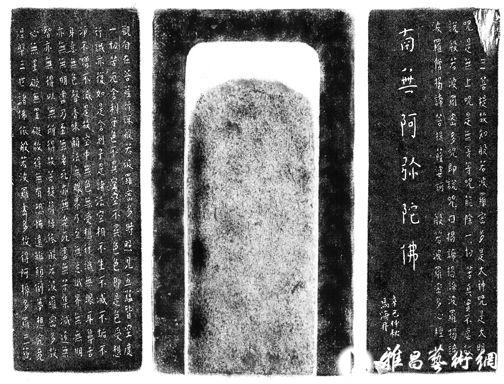 觀自在菩薩行深般若波羅密多時照見五蘊皆空度
一切苦厄舍利子色不異空空不異色色即是空受想
行識亦復如是舍利子是諸法空相不生不滅不垢不
淨不增不減是故空中無色無受想行識無眼耳鼻舌
身意無色聲香味觸法無眼界乃至無意識界無無明
亦無無明盡乃至無老死亦無老死盡無苦集滅道無
智亦無得以無所得故菩提薩埵依般若波羅密多故
心無罣礙無罣礙故無有恐怖遠離顛倒夢想究竟
涅槃三世諸佛依般若波羅密多故得阿耨多羅三藐
三菩提故知般若波羅密多是大神咒是大明
咒是無上咒是無等等咒能除一切苦真實不虛故
說般若波羅密多咒即說咒曰揭諦揭諦波羅揭諦
波羅僧揭諦菩提薩婆訶 般若波羅密多心經
南無阿弥陀佛
辛巳仲秋
雅昌藝術網